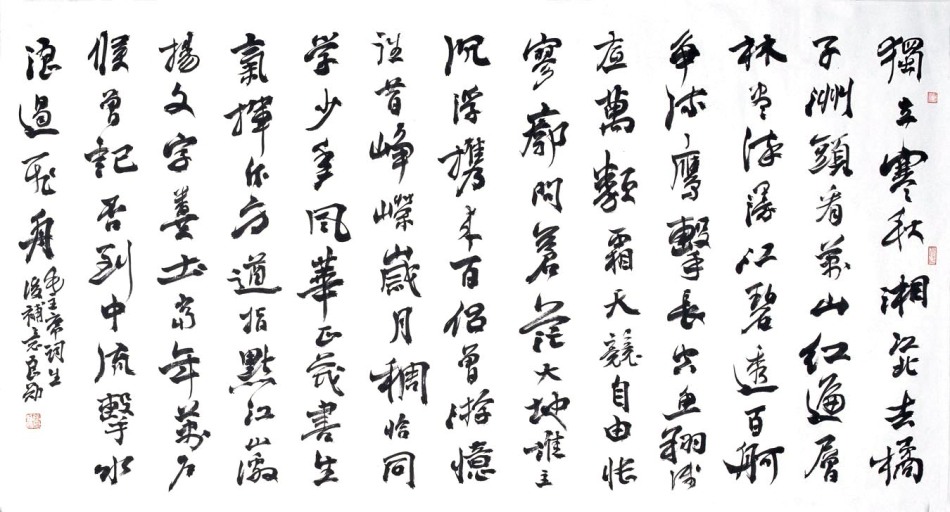 獨立寒秋湘江北去橘
子洲頭看萬山紅遍層
林盡染漫江碧透百舸
争流鷹擊長空魚翔淺
底萬類霜天競自由悵
寥廓問蒼茫大地誰主
沉浮携来百侣曾游憶
往昔峥嶸歲月稠恰同
学少年風華正茂書生
氣揮斥方遒指點江山激
揚文字糞土當年萬户
侯曾記否到中流擊水
浪遏飛舟
毛主席詞生
後補意良勋